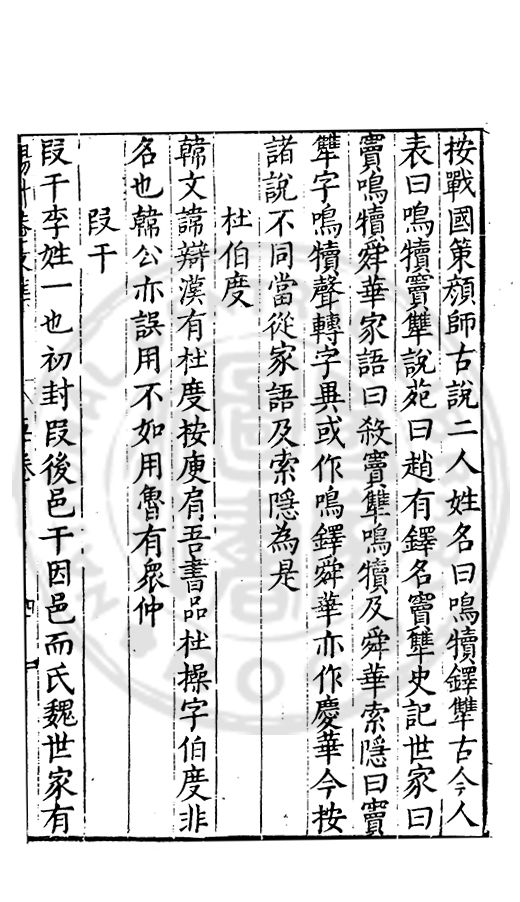 按戰國策顔師古說二人姓名曰鳴犢鐸犨古今人
表曰鳴犢竇犨說苑曰趙有鐸名竇犨史記世家曰
竇鳴犢舜華家語曰殺竇犨鳴犢及舜華索隱曰竇
犨字鳴犢聲轉字異或作鳴鐸舜華亦作慶華今按
諸說不同當從家語及索隱為是
杜伯度
韓文諱辯漢有杜度按庾肩吾書品杜操字伯度非
名也韓公亦誤用不如用魯有衆仲
叚干
叚干李姓一也初封叚後邑干因邑而氏魏世家有